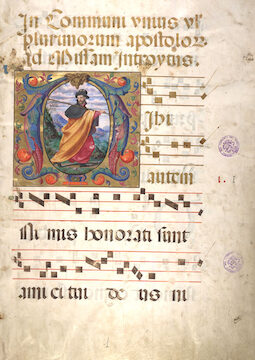 In Communi unius ul̄
plurimorum apostolor
Ad Missam Introytus.
Ihi
autem
Ni mis honorati sunt
ami ci tui de us ni